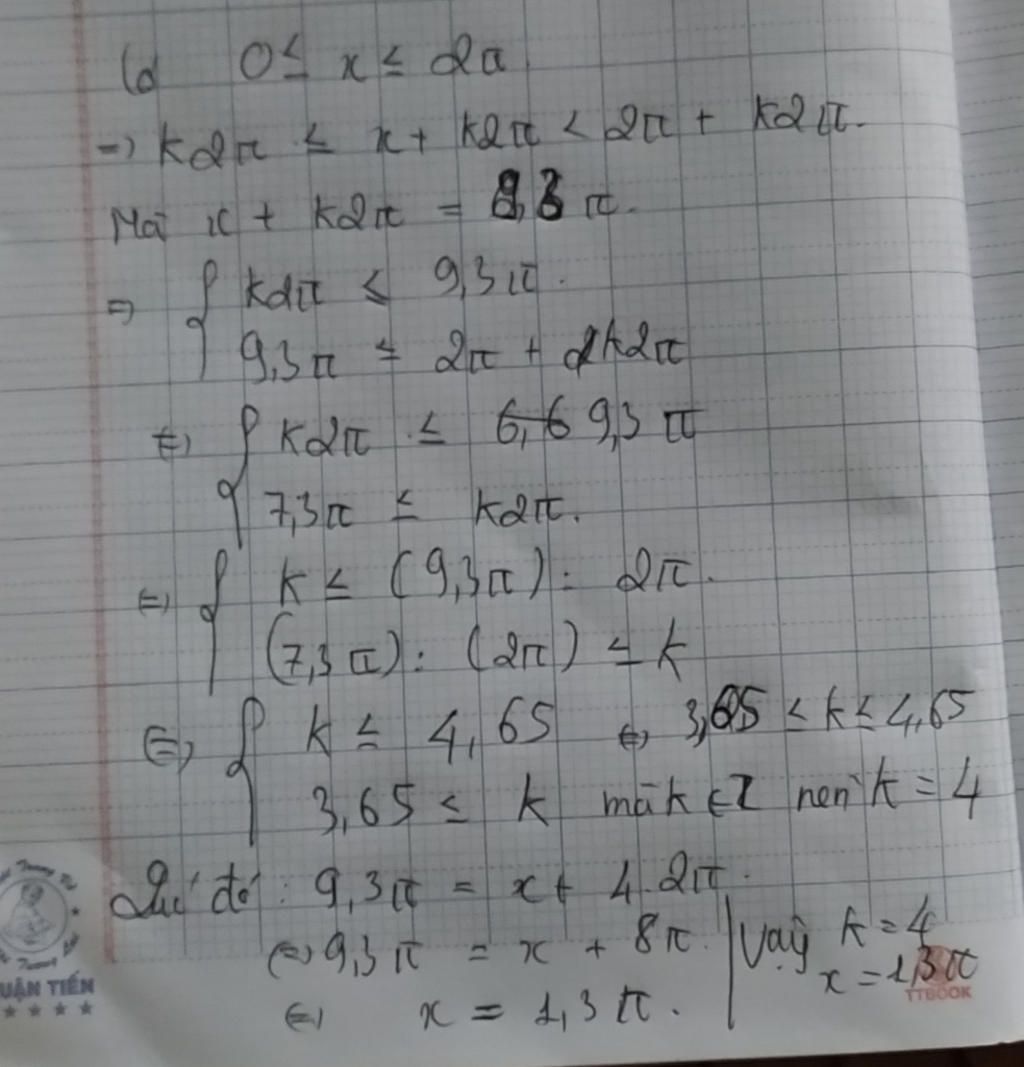 Có 0 ≤ x ≤ 2π
=> k2π ≤ x + k2π < 2π + k2π.
Mà x + k2π = 9,3π.
=> { k2π ≤ 9,3π.
9,3π ≤ 2π + k2π
<=> { k2π ≤ 9,3π
7,3π ≤ k2π.
<=> { k ≤ (9,3π) : 2π.
(7,3π) : (2π) ≤ k
<=> { k ≤ 4,65 <=> 3,65 ≤ k ≤ 4,65
3,65 ≤ k mà k ∈ Z nên k = 4
đó : 9,3π = x + 4.2π.
<=> 9,3π = x + 8π.
<=> x = 1,3π.
Vậy k = 4
x = 1,3π
UẬN TIẾN
TTBOOK